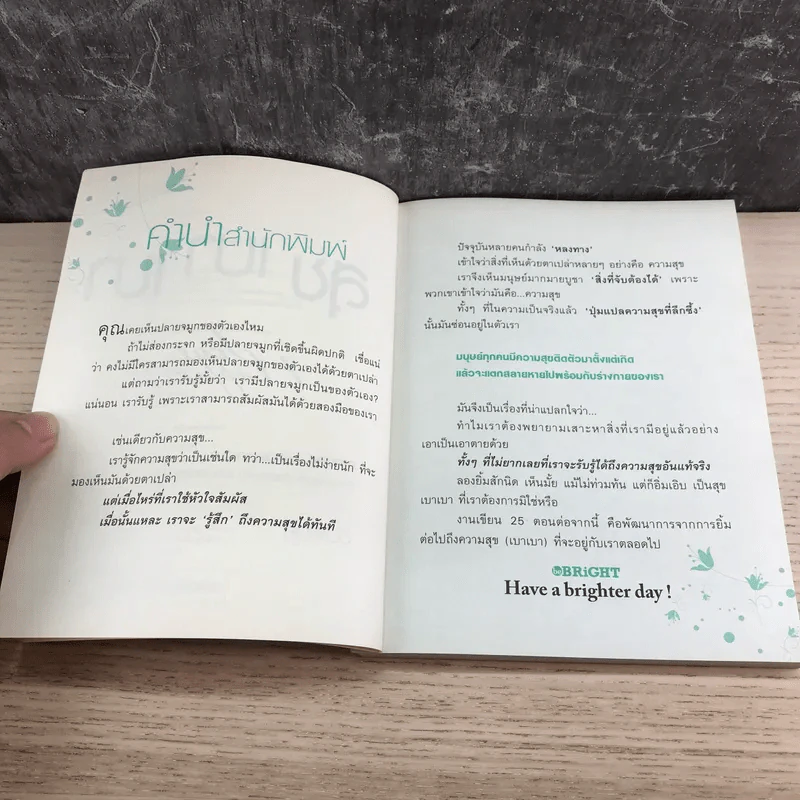 คำนำสำนักพิมพ์
คุณเคยเห็นปลายจมูกของตัวเองไหม
ถ้าไม่ส่องกระจก หรือมีปลายจมูกที่เชิดขึ้นผิดปกติ เชื่อแน่
ว่า คงไม่มีใครสามารถมองเห็นปลายจมูกของตัวเองได้ด้วยตาเปล่า
แต่ถามว่าเรารับรู้มั้ยว่า เรามีปลายจมูกเป็นของตัวเอง?
แน่นอน เรารับรู้ เพราะเราสามารถสัมผัสมันได้ด้วยสองมือของเรา
เช่นเดียวกับความสุข...
เรารู้จักความสุขว่าเป็นเช่นใด ทว่า...เป็นเรื่องไม่ง่ายนัก ที่จะ
มองเห็นมันด้วยตาเปล่า
แต่เมื่อไหร่ที่เราใช้หัวใจสัมผัส
เมื่อนั้นแหละ เราจะ 'รู้สึก' ถึงความสุขได้ทันที
ปัจจุบันหลายคนกำลัง 'หลงทาง'
เข้าใจว่าสิ่งที่เห็นด้วยตาเปล่าหลายๆ อย่างคือ ความสุข
เราจึงเห็นมนุษย์มากมายบูชา 'สิ่งที่จับต้องได้' เพราะ
พวกเขาเข้าใจว่ามันคือ...ความสุข
ทั้งๆ ที่ในความเป็นจริงแล้ว 'ปุ่มแปลความสุขที่ลึกซึ้ง'
นั้นมันซ่อนอยู่ในตัวเรา
มนุษย์ทุกคนมีความสุขติดตัวมาตั้งแต่เกิด
แล้วจะแตกสลายหายไปพร้อมกับร่างกายของเรา
มันจึงเป็นเรื่องที่น่าแปลกใจว่า...
ทำไมเราต้องพยายามเสาะหาสิ่งที่เรามีอยู่แล้วอย่าง
เอาเป็นเอาตายด้วย
ทั้งๆ ที่ไม่ยากเลยที่เราจะรับรู้ได้ถึงความสุขอันแท้จริง
ลองยิ้มสักนิด เห็นมั้ย แม้ไม่ท่วมท้น แต่ก็อิ่มเอิบ เป็นสุข
เบาเบา ที่เราต้องการมิใช่หรือ
งานเขียน 25 ตอนต่อจากนี้ คือพัฒนาการจากการยิ้ม
ต่อไปถึงความสุข (เบาเบา) ที่จะอยู่กับเราตลอดไป
be BRiGHT
Have a brighter day !